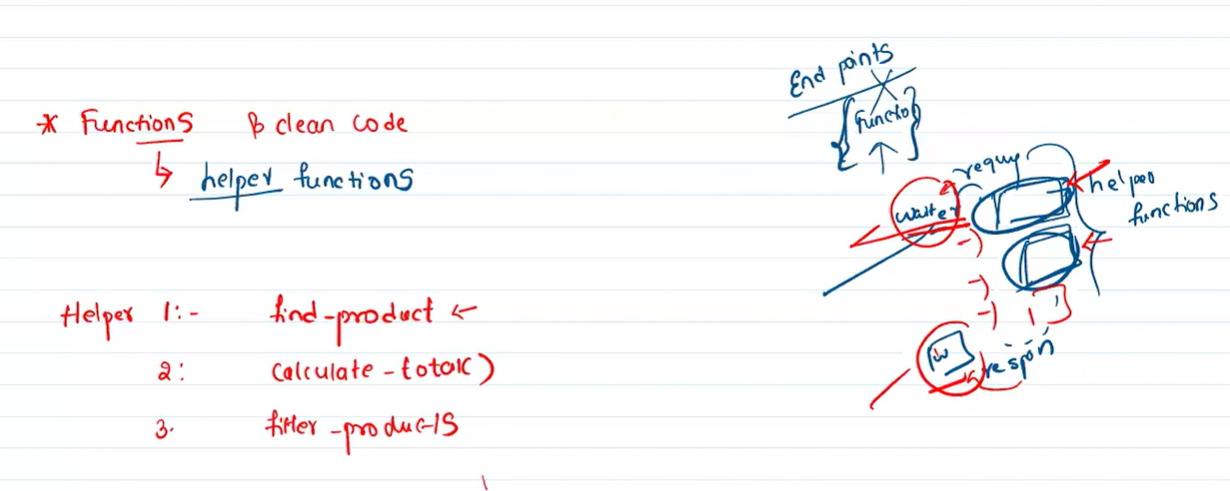 * Functions & clean code
↳ helper functions
Helper 1:- find-product ←
2: calculate-total()
3. filter-products
End points
{ Function }
↑
waiter
helper
functions
-)
-)
-)
w
respon